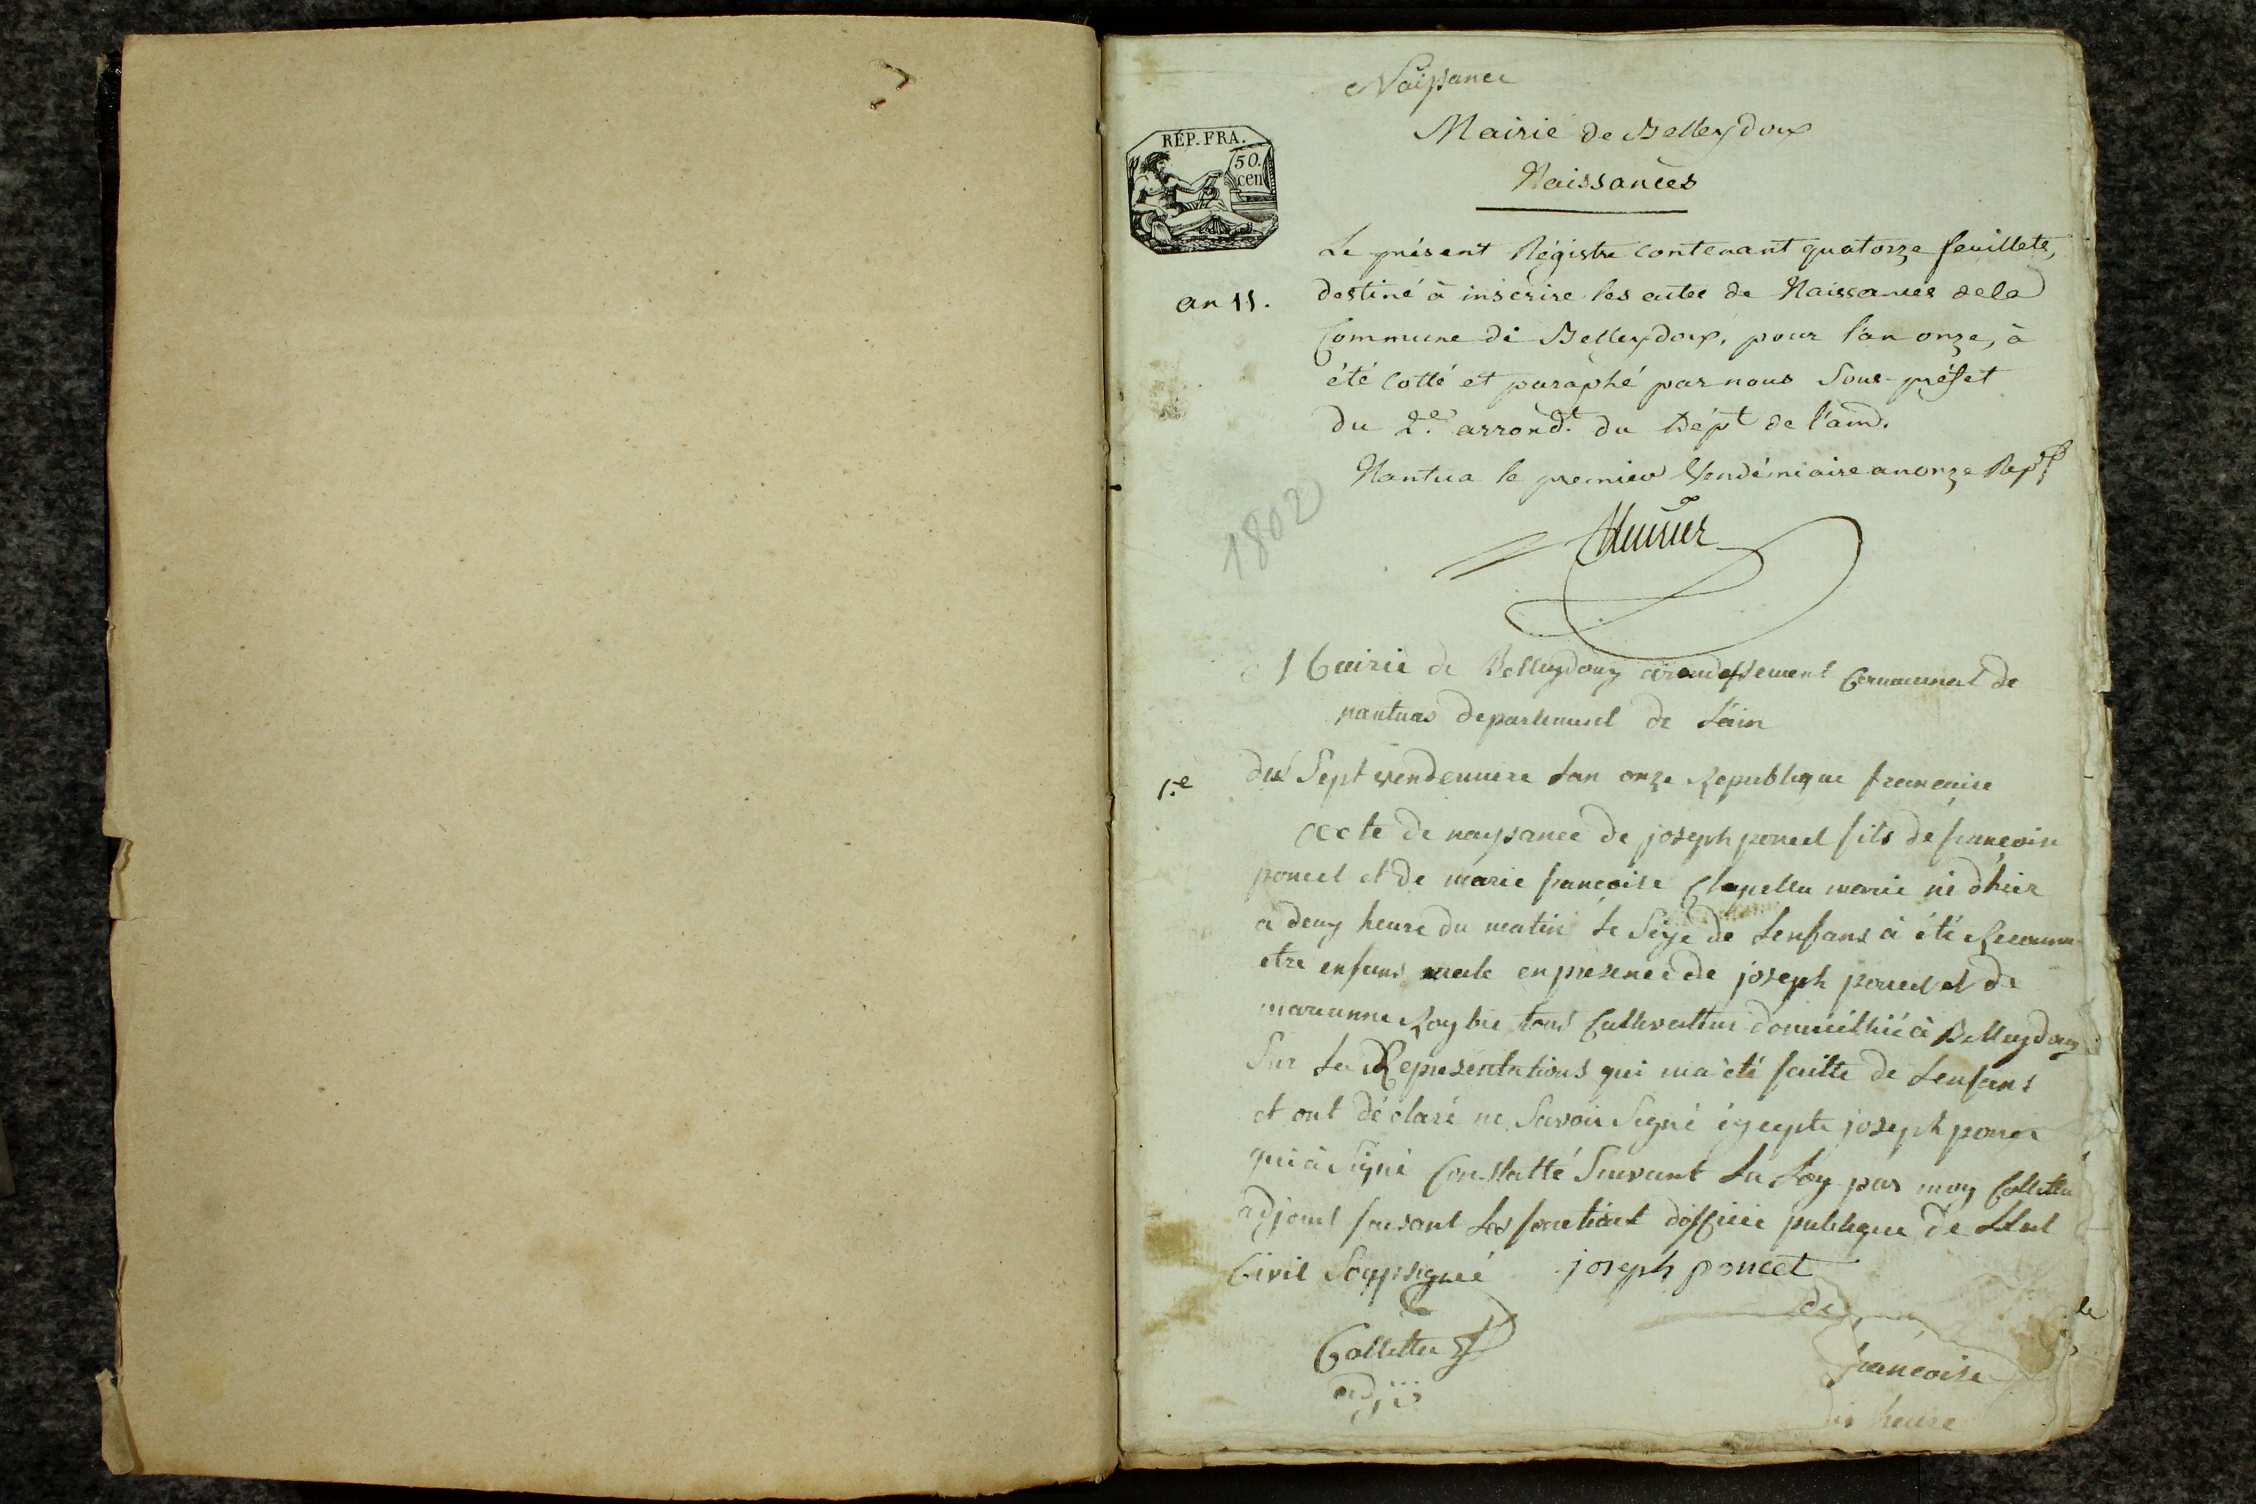 Naissance
Mairie de Belleydoux
Naissances
RÉP. FRA.
50.
cen
Le présent Régistre contenant quatorze feuillets,
an 11.
destiné à inscrire les actes de Naissances de la
Commune de Belleydoux, pour l'an onze, à
été cotté et paraphé par nous Sous-préfet
du 2.e arrond.t du Dép.t de l'ain.
Nantua le premier Vendémiaire an onze Rep.
1802
Mairie de Belleydoux arondissement Communal de
nantua departement de L'ain
1.e
du Sept vendemiere Lan onze Republique francaise
Acte de naysance de joseph poncet fils de francois
poncet et de marie francoise marié né d'hier
a deux heure du matin Le Sexe de Lenfans à été Reconnu
etre enfans male en presence de joseph poncet et de
marianne tous Cultivatteur domicilhié à Belleydoux
Sur La Representations qui ma été faitte de Lenfans
et ont déclaré ne Savoir Signé éxcepte joseph poncet
qui à Signé Constatté Suivant La Loy par moy Collettaz
adjoint faisant Les fonctions dofficié publique de Letat
Civil Soussigné joseph poncet
de
la
Collettaz
francoise
adj
dix heure